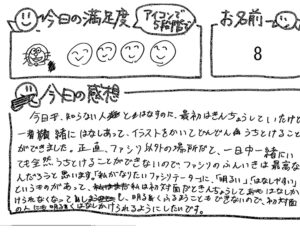 今日の満足度
アイコンで
5段階で
お名前
8
今日の感想
今日は、知らない人とはなすのに、最初はきんちょうしていたけど
一番 緒にはなしあって、イラストをかいてぜんぜんうちとけること
ができました。正直、ファシリ以外の場所だと、一日中一緒にい
ても全然うちとけることができないので、ファシリのふんいきは最高な
んだろうと思います。私がなりたいファシリテーターに、「明るい」「はなしやすい」
というものがあって、私は初対面だときんちょうしてはなしか
けられなくなって、明るくふるまうこともできないので、初対面
の人にも明るくはなしかけられるようにしたいです。